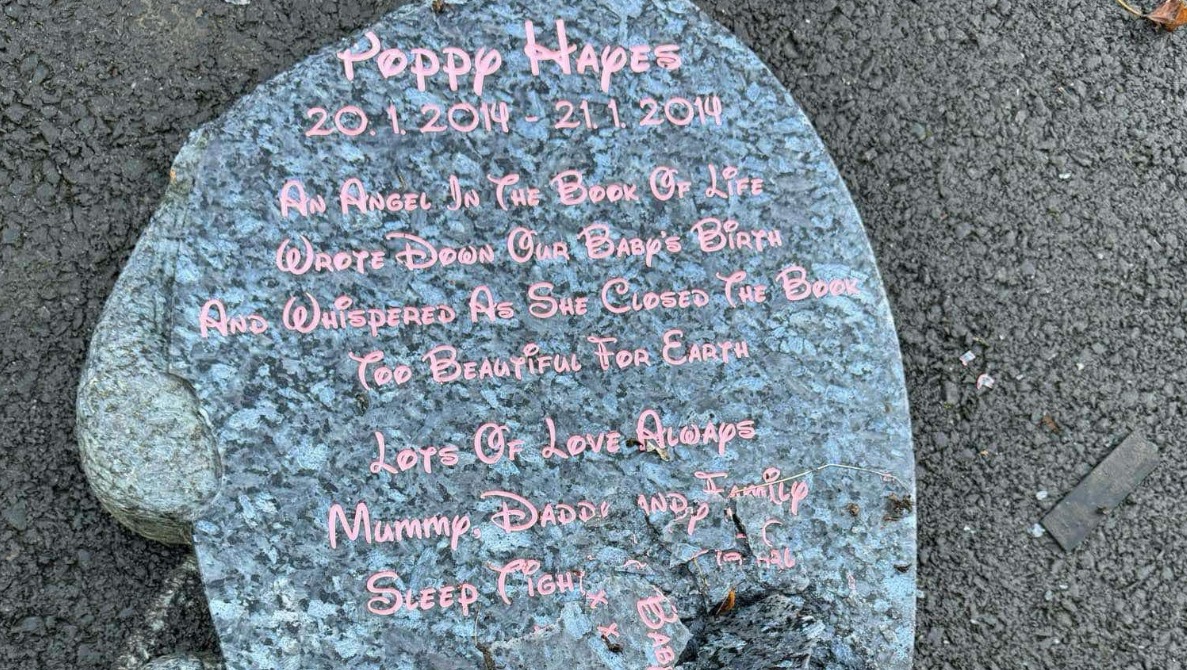 Poppy Hayes
20.1.2014 - 21.1.2014
An Angel In The Book Of Life
Wrote Down Our Baby's Birth
And Whispered As She Closed The Book
Too Beautiful For Earth
Lots Of Love Always
Mummy, Daddy and Family
Sleep Tight
x
x